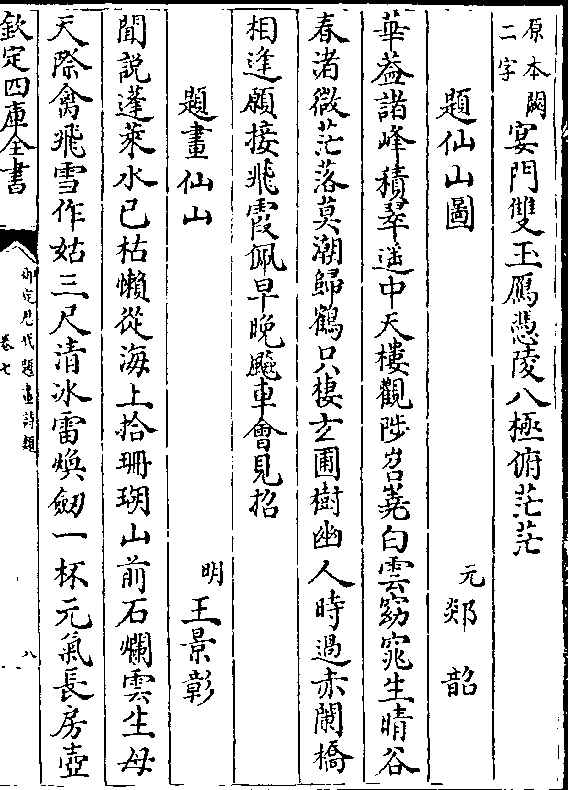 原本闕
二字
宴門雙玉鴈憑陵八極俯茫茫
題仙山圖 元 郯韶
華葢諸峰積翠遥中天樓觀陟岧嶤白雲窈窕生晴谷
春渚微茫落莫潮歸鶴只棲玄圃樹幽人時過赤闌橋
相逢願接飛霞佩早晚飈車會見招
題畫仙山 明 王景彰
聞説蓬萊水已枯懶從海上拾珊瑚山前石爛雲生母
天際禽飛雪作姑三尺清冰雷煥劒一杯元氣長房壺
欽定四庫全書
御定歷代題畫詩類
卷七
八